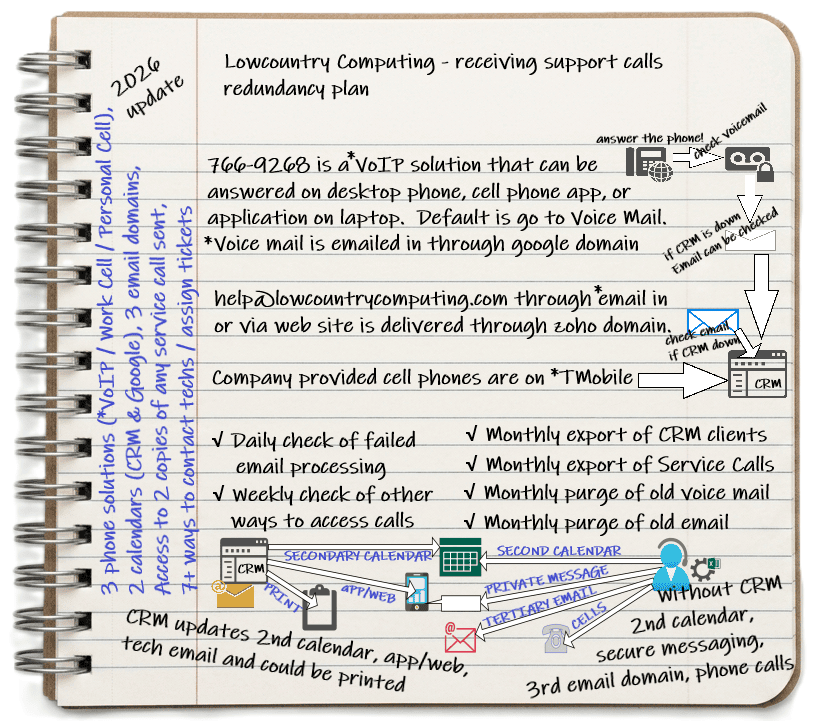 2026
update
Lowcountry Computing - receiving support calls
redundancy plan
answer the phone!
check voicemail
766-9268 is a *VoIP solution that can be
answered on desktop phone, cell phone app, or
application on laptop. Default is go to Voice Mail.
*Voice mail is emailed in through google domain
if CRM is down
Email can be checked
help@lowcountrycomputing.com through *email in
or via web site is delivered through zoho domain.
check email
if CRM down
Company provided cell phones are on *TMobile
CRM
3 phone solutions (*VoIP / Work Cell / Personal Cell),
2 calendars (CRM & Google), 3 email domains,
Access to 2 copies of any service call sent,
7+ ways to contact techs / assign tickets
√ Daily check of failed
email processing
√ Weekly check of other
ways to access calls
√ Monthly export of CRM clients
√ Monthly export of Service Calls
√ Monthly purge of old voice mail
√ Monthly purge of old email
CRM
SECONDARY CALENDAR
SECOND CALENDAR
PRINT
APP/WEB
PRIVATE MESSAGE
TERTIARY EMAIL
CELLS
CRM updates 2nd calendar, app/web,
tech email and could be printed
Without CRM
2nd calendar,
secure messaging,
3rd email domain, phone calls